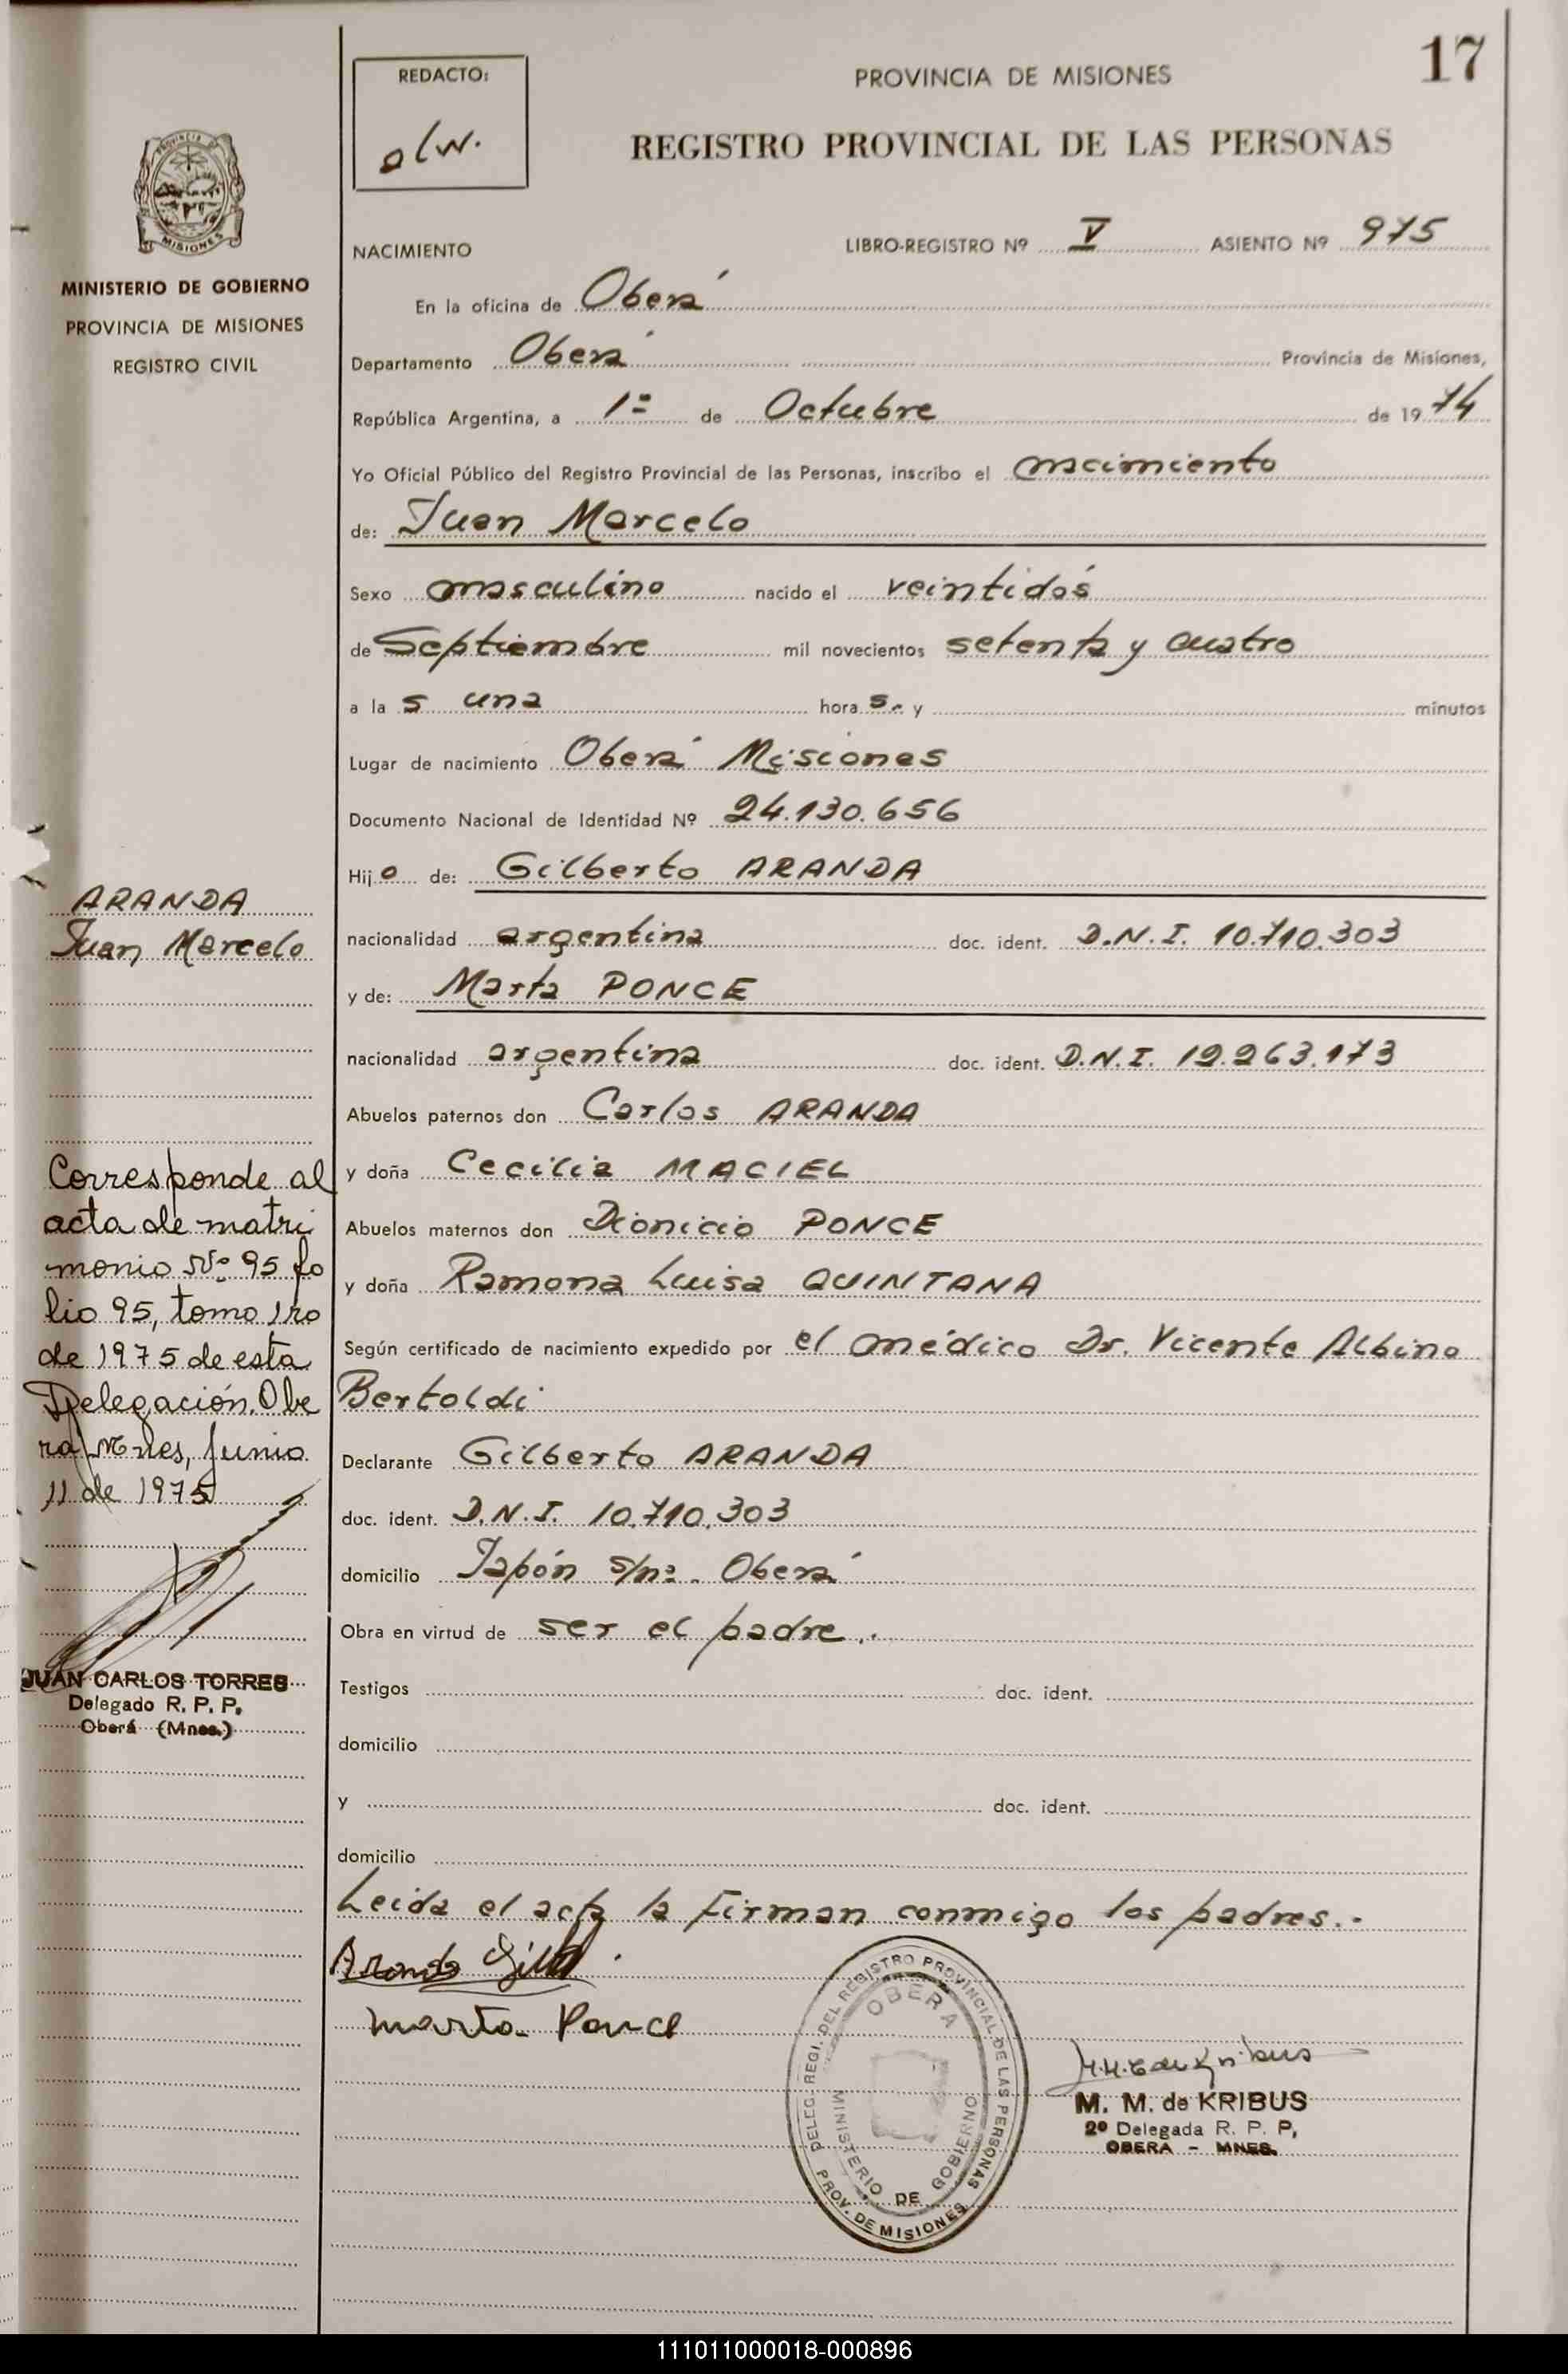 17
REDACTO:
PROVINCIA DE MISIONES
REGISTRO PROVINCIAL DE LAS PERSONAS
PROVINCIA DE
MISIONES
MINISTERIO DE GOBIERNO
PROVINCIA DE MISIONES
REGISTRO CIVIL
NACIMIENTO LIBRO-REGISTRO Nº V ASIENTO Nº 975
En la oficina de Oberá
Departamento Oberá Provincia de Misiones,
República Argentina, a 1º de Octubre de 1974
Yo Oficial Público del Registro Provincial de las Personas, inscribo el nacimiento
de: Juan Marcelo
Sexo masculino nacido el veintidós
de Septiembre mil novecientos setenta y cuatro
a la s una hora s.- y minutos
Lugar de nacimiento Oberá Misiones
Documento Nacional de Identidad Nº 24.130.656
Hijo de: Gilberto ARANDA
nacionalidad argentina doc. ident. D.N.I. 10.710.303
y de: Marta PONCE
nacionalidad argentina doc. ident. D.N.I. 12.263.173
Abuelos paternos don Carlos ARANDA
y doña Cecilia MACIEL
Abuelos maternos don Dionicio PONCE
y doña Ramona Luisa QUINTANA
Según certificado de nacimiento expedido por el médico Dr. Vicente Albino
Bertoldi
Declarante Gilberto ARANDA
doc. ident. D.N.I. 10.710.303
domicilio Japón s/nº. Oberá
Obra en virtud de ser el padre..
Testigos doc. ident.
domicilio
y doc. ident.
domicilio
Leida el acta la firman conmigo los padres.-
Aranda
Marta Ponce
ARANDA
Juan Marcelo
Corresponde al
acta de matri
monio Nº 95 fo
lio 95, tomo 1ro
de 1975 de esta
Delegación. Obe
rá Mnes, Junio
11 de 1975
JUAN CARLOS TORRES
Delegado R. P. P.
Oberá (Mnes.)
DELEG. REGI. DEL REGISTRO PROVINCIAL DE LAS PERSONAS
OBERA
MINISTERIO DE GOBIERNO
PROV. DE MISIONES
M. M. de KRIBUS
2º Delegada R. P. P.
OBERA - MNES.
111011000018-000896